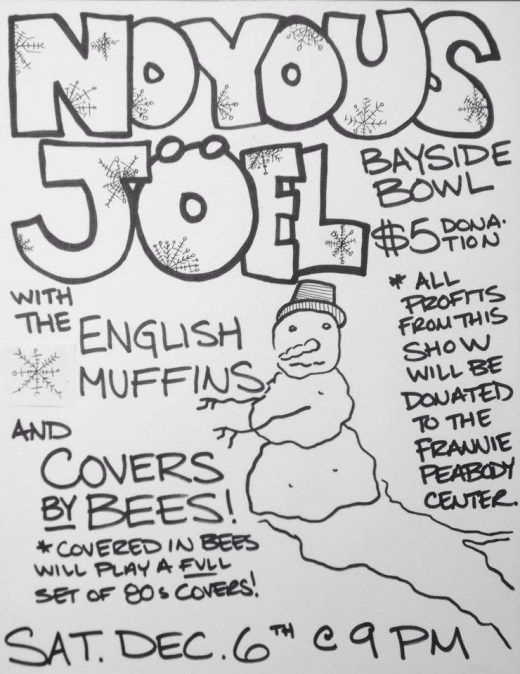 NOYOUS
JÖEL
BAYSIDE
BOWL
$5 DONA-
TION
* ALL
PROFITS
FROM THIS
SHOW
WILL BE
DONATED
TO THE
FRANNIE
PEABODY
CENTER.
WITH
THE
ENGLISH
MUFFINS
AND
COVERS
BY BEES!
* COVERED IN BEES
WILL PLAY A FULL
SET OF 80s COVERS!
SAT. DEC. 6TH @ 9 PM